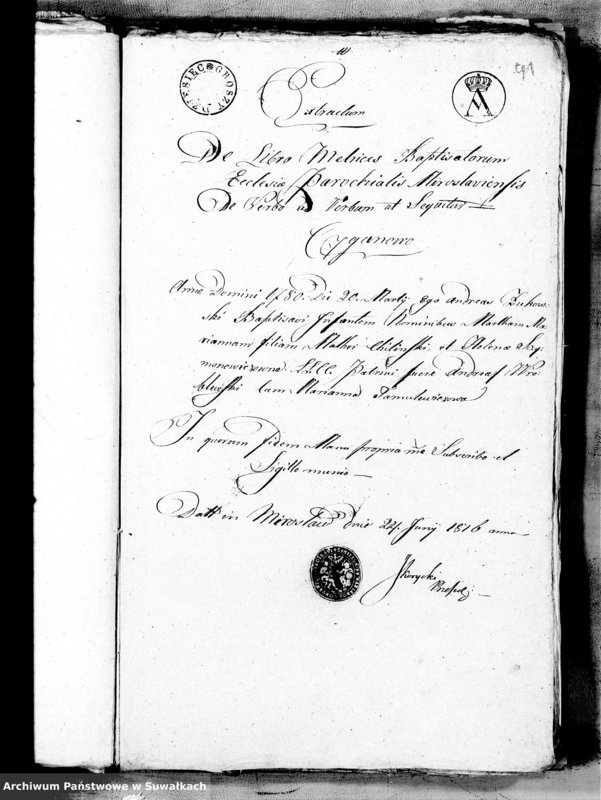 DZIESIĘC GROSZY
Extractum
De Libro Metrices Baptisatorum
Ecclesiæ Parochialis Miroslaviensis
De Verbo ad Verbum ut Sequitur
Cyganowo
Anno Domini 1780. Die 20. Martij ego Andreas Żukow-
ski Baptisavi Infantem Nominibus Martham Ma-
riannam filiam Mathei Chilinski et Helenæ Szy-
monowiczowna. L: C: C: Patrini fuere Andreas Wro-
blewski cum Marianna Tamulewiczowa
In quorum fidem Manu propria Subscribo et
Sigillo munio
Datt in Mirosław die 24. Junij 1816 anno
Archiwum Państwowe w Suwałkach